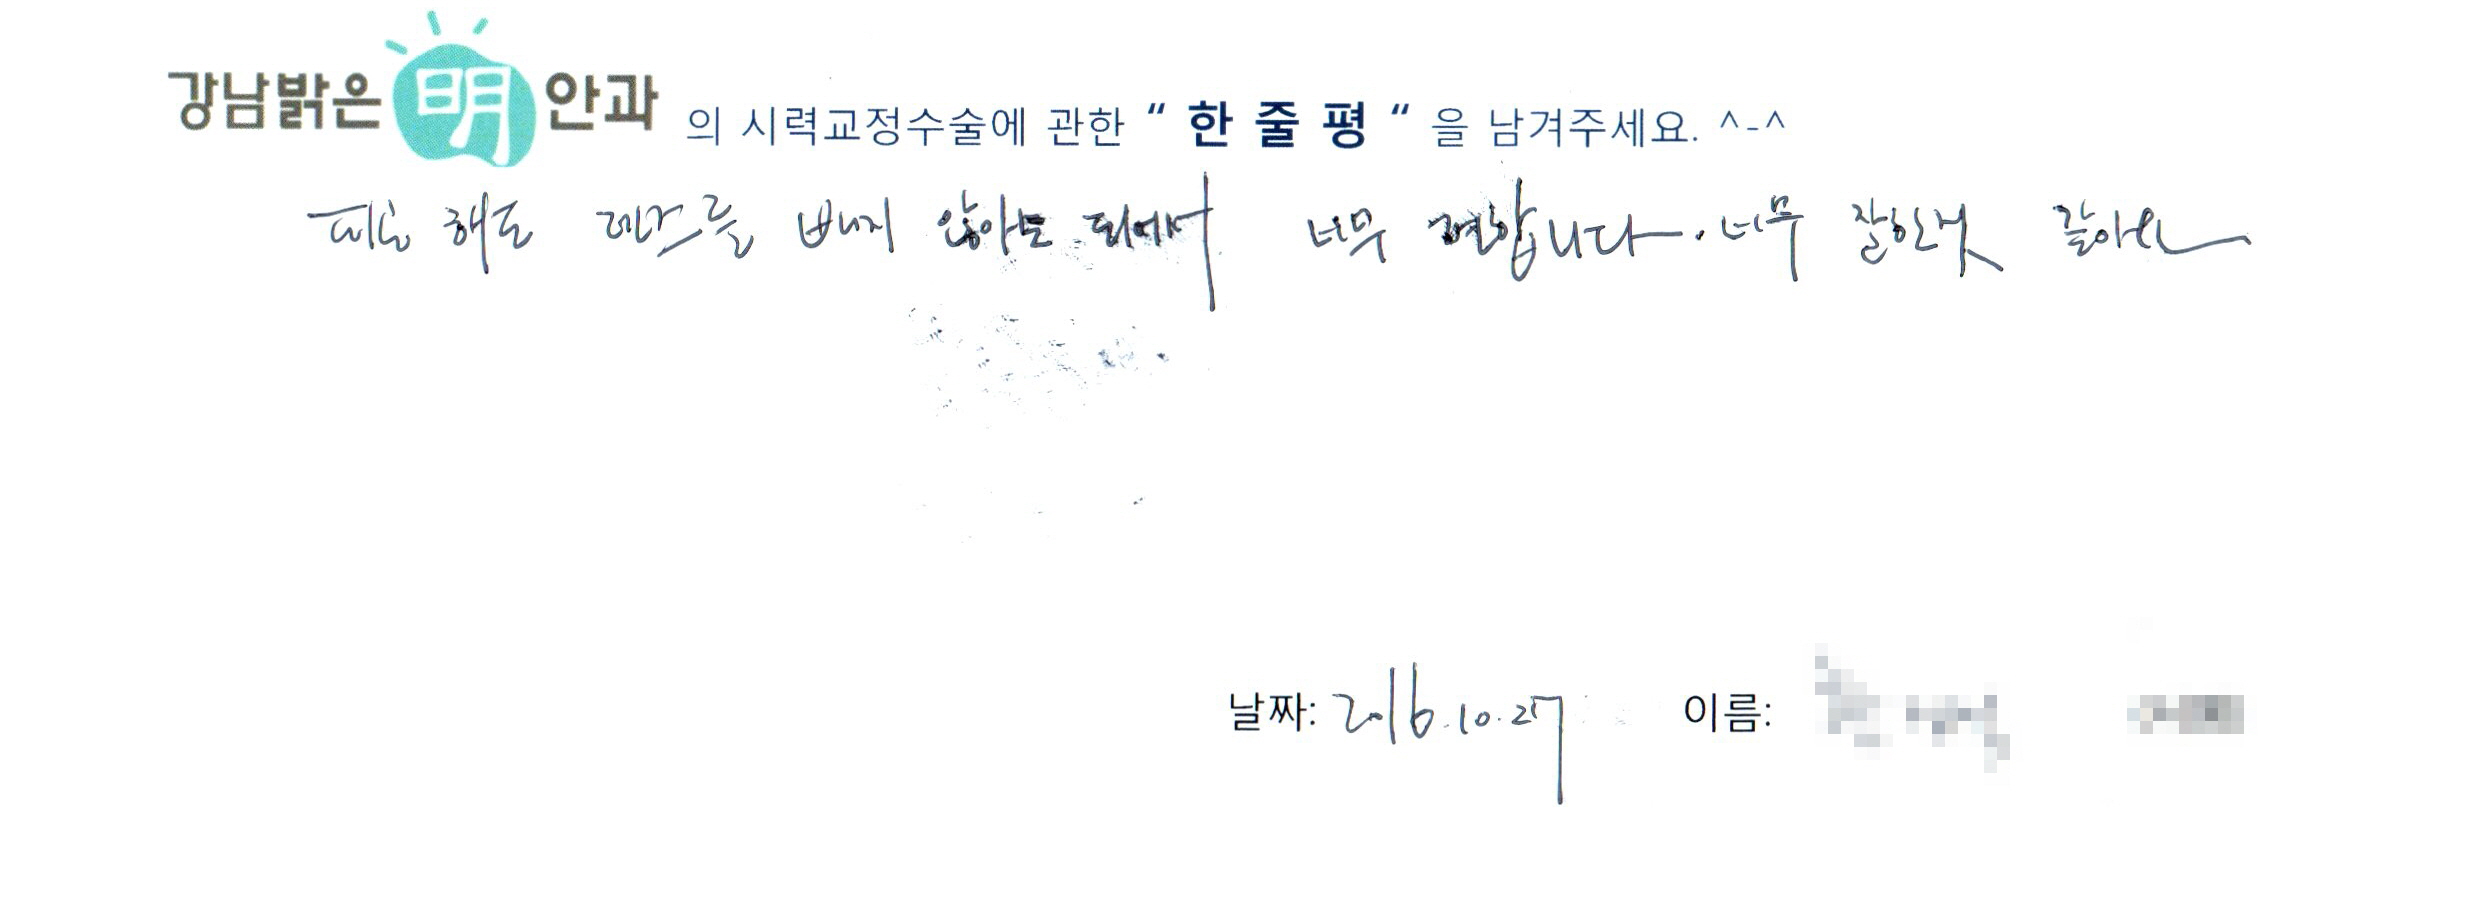 강남밝은 明 안과 의 시력교정수술에 관한 “ 한 줄 평 “ 을 남겨주세요. ^-^
해도 렌즈를 빼지 않아도 되어서 너무 편합니다. 너무 잘한것 같아요
날짜: 2016.10.27 이름: